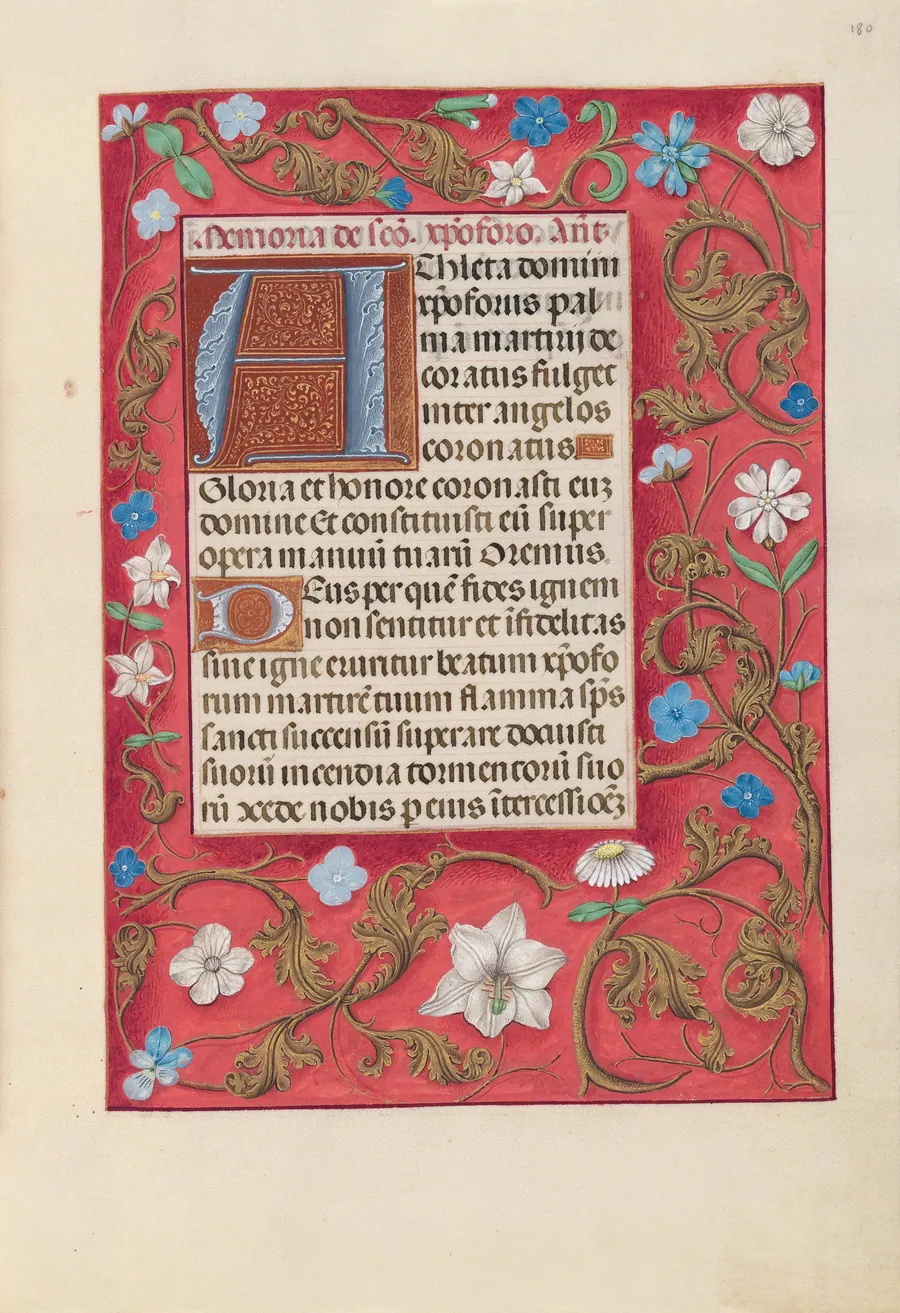 180
Memoria de sc̄o. xp̄oforo. Ant̄
AThleta domini
xp̄oforus pal
ma martirij de
coratus fulget
inter angelos
coronatus
Gloria et honore coronasti euꝫ
domine Et constituisti eū super
opera manuū tuarū Oremus.
DEus per quē fides ignem
non sentitur et īfidelitas
sine igne eruntur beatum xp̄ofo
rum martirē tuum flamma sp̄s
sancti succensū superare docuisti
suorū incendia tormentorū suo
rū ꝯcede nobis ꝑ eius ītercessioēꝫ